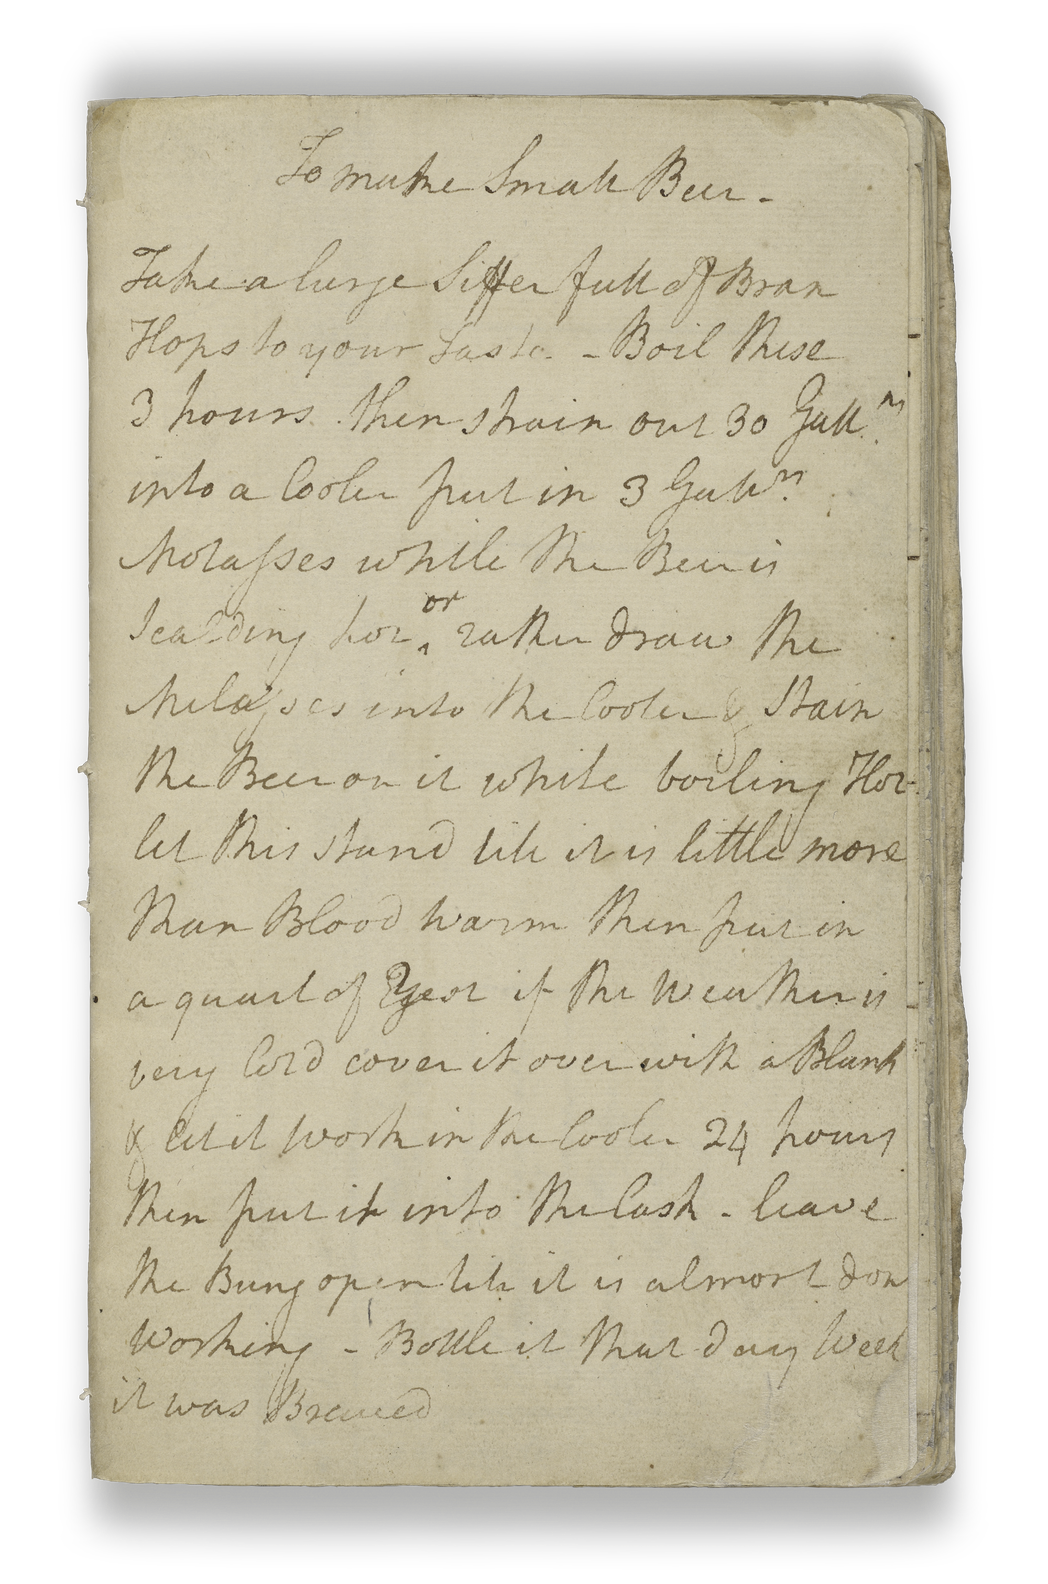 To make Small Beer -
Take a large Siffer full of Bran
Hops to your Taste - Boil these
3 hours. then strain out 30 Gall.ns
into a Cooler put in 3 Gall.ns
Molasses while the Beer is
Scalding hot or rather draw the
Melasses into the Cooler & Stain
the Beer on it while boiling Hot
let this stand till it is little more
than Blood warm then put in
a quart of Yest if the weather is
very Cold cover it over with a Blank
& let it work in the Cooler 24 hours
then put it into the Cask - leave
the Bung open till it is almost don
working - Bottle it that day Week
it was Brewed